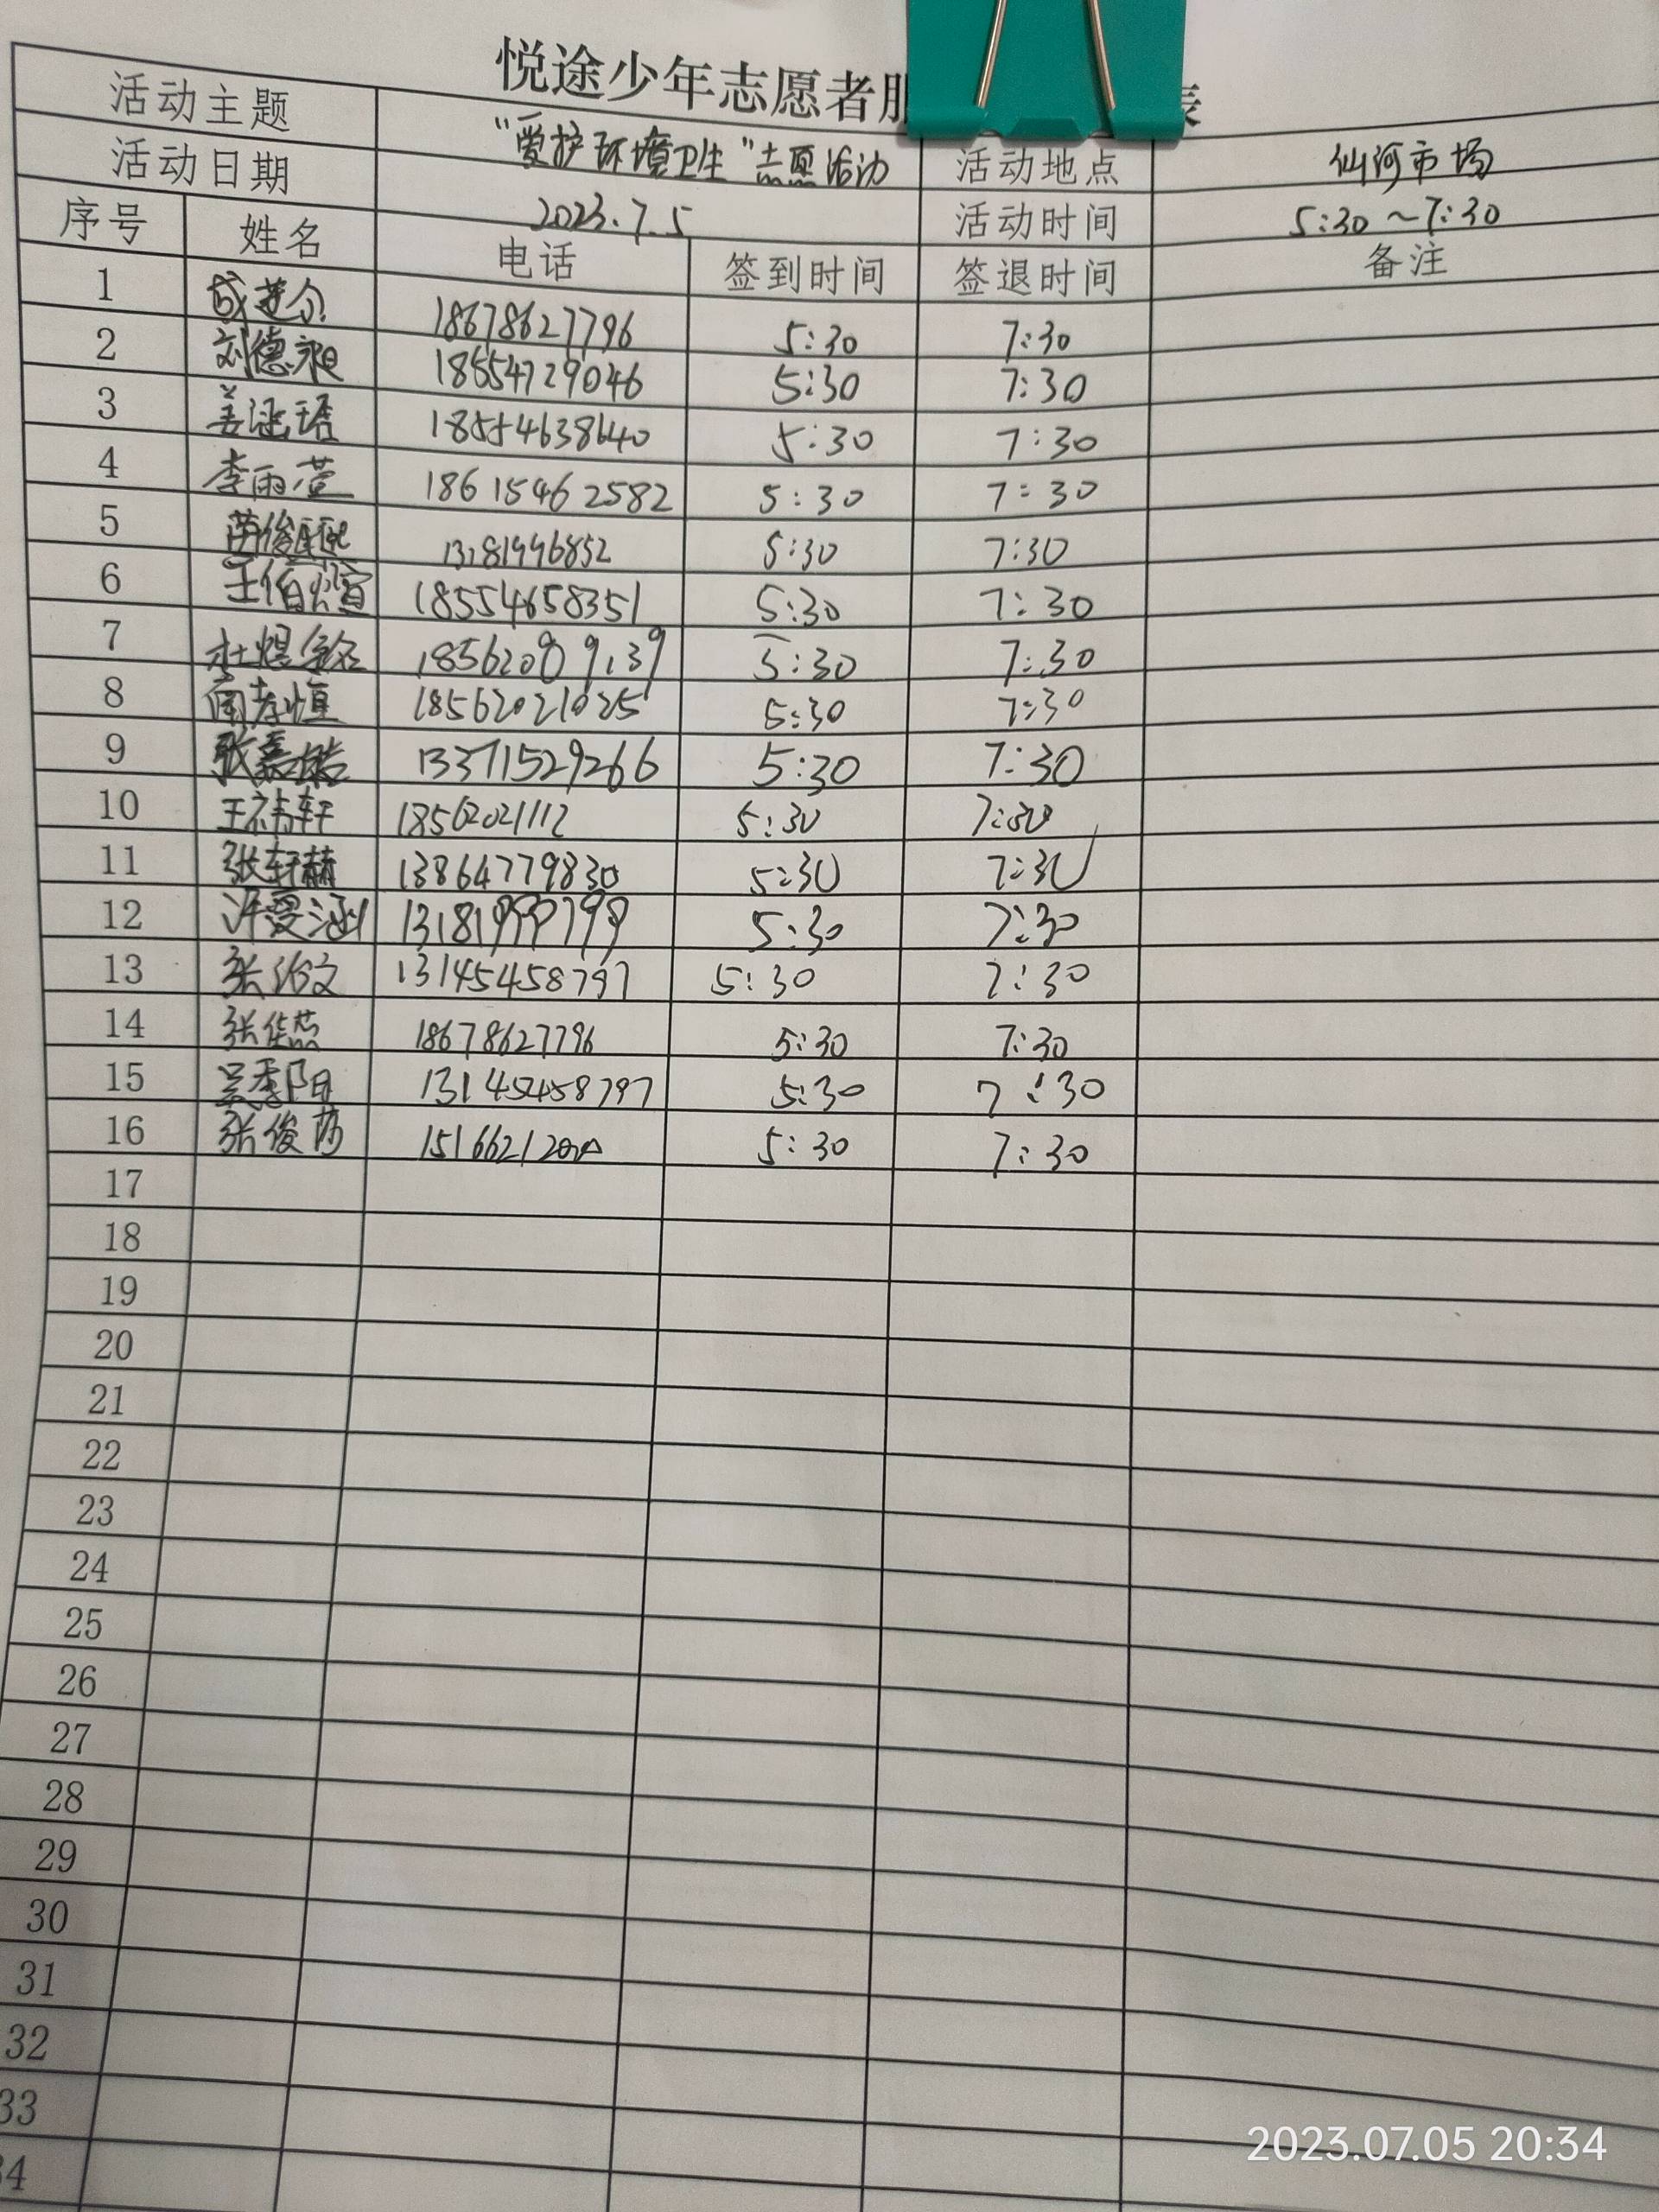 悦途少年志愿者服 表
活动主题 “爱护环境卫生”志愿活动 活动地点 仙河市场
活动日期 2023.7.5 活动时间 5:30～7:30
序号 姓名 电话 签到时间 签退时间 备注
1 18678627796 5:30 7:30
2 刘德昶 18554729046 5:30 7:30
3 姜涵珺 18554638640 5:30 7:30
4 李雨萱 18615462582 5:30 7:30
5 13181996852 5:30 7:30
6 王伯煊 18554658351 5:30 7:30
7 杜煜铭 18562089139 5:30 7:30
8 18562021025 5:30 7:30
9 张嘉皓 13371529266 5:30 7:30
10 王祎轩 18562021112 5:30 7:30
11 张轩赫 13864779830 5:30 7:30
12 许夏涵 13181999799 5:30 7:30
13 13145458797 5:30 7:30
14 18678627796 5:30 7:30
15 吴季阳 13145458797 5:30 7:30
16 张俊 5:30 7:30
17
18
19
20
21
22
23
24
25
26
27
28
29
30
31
32
33
34
2023.07.05 20:34